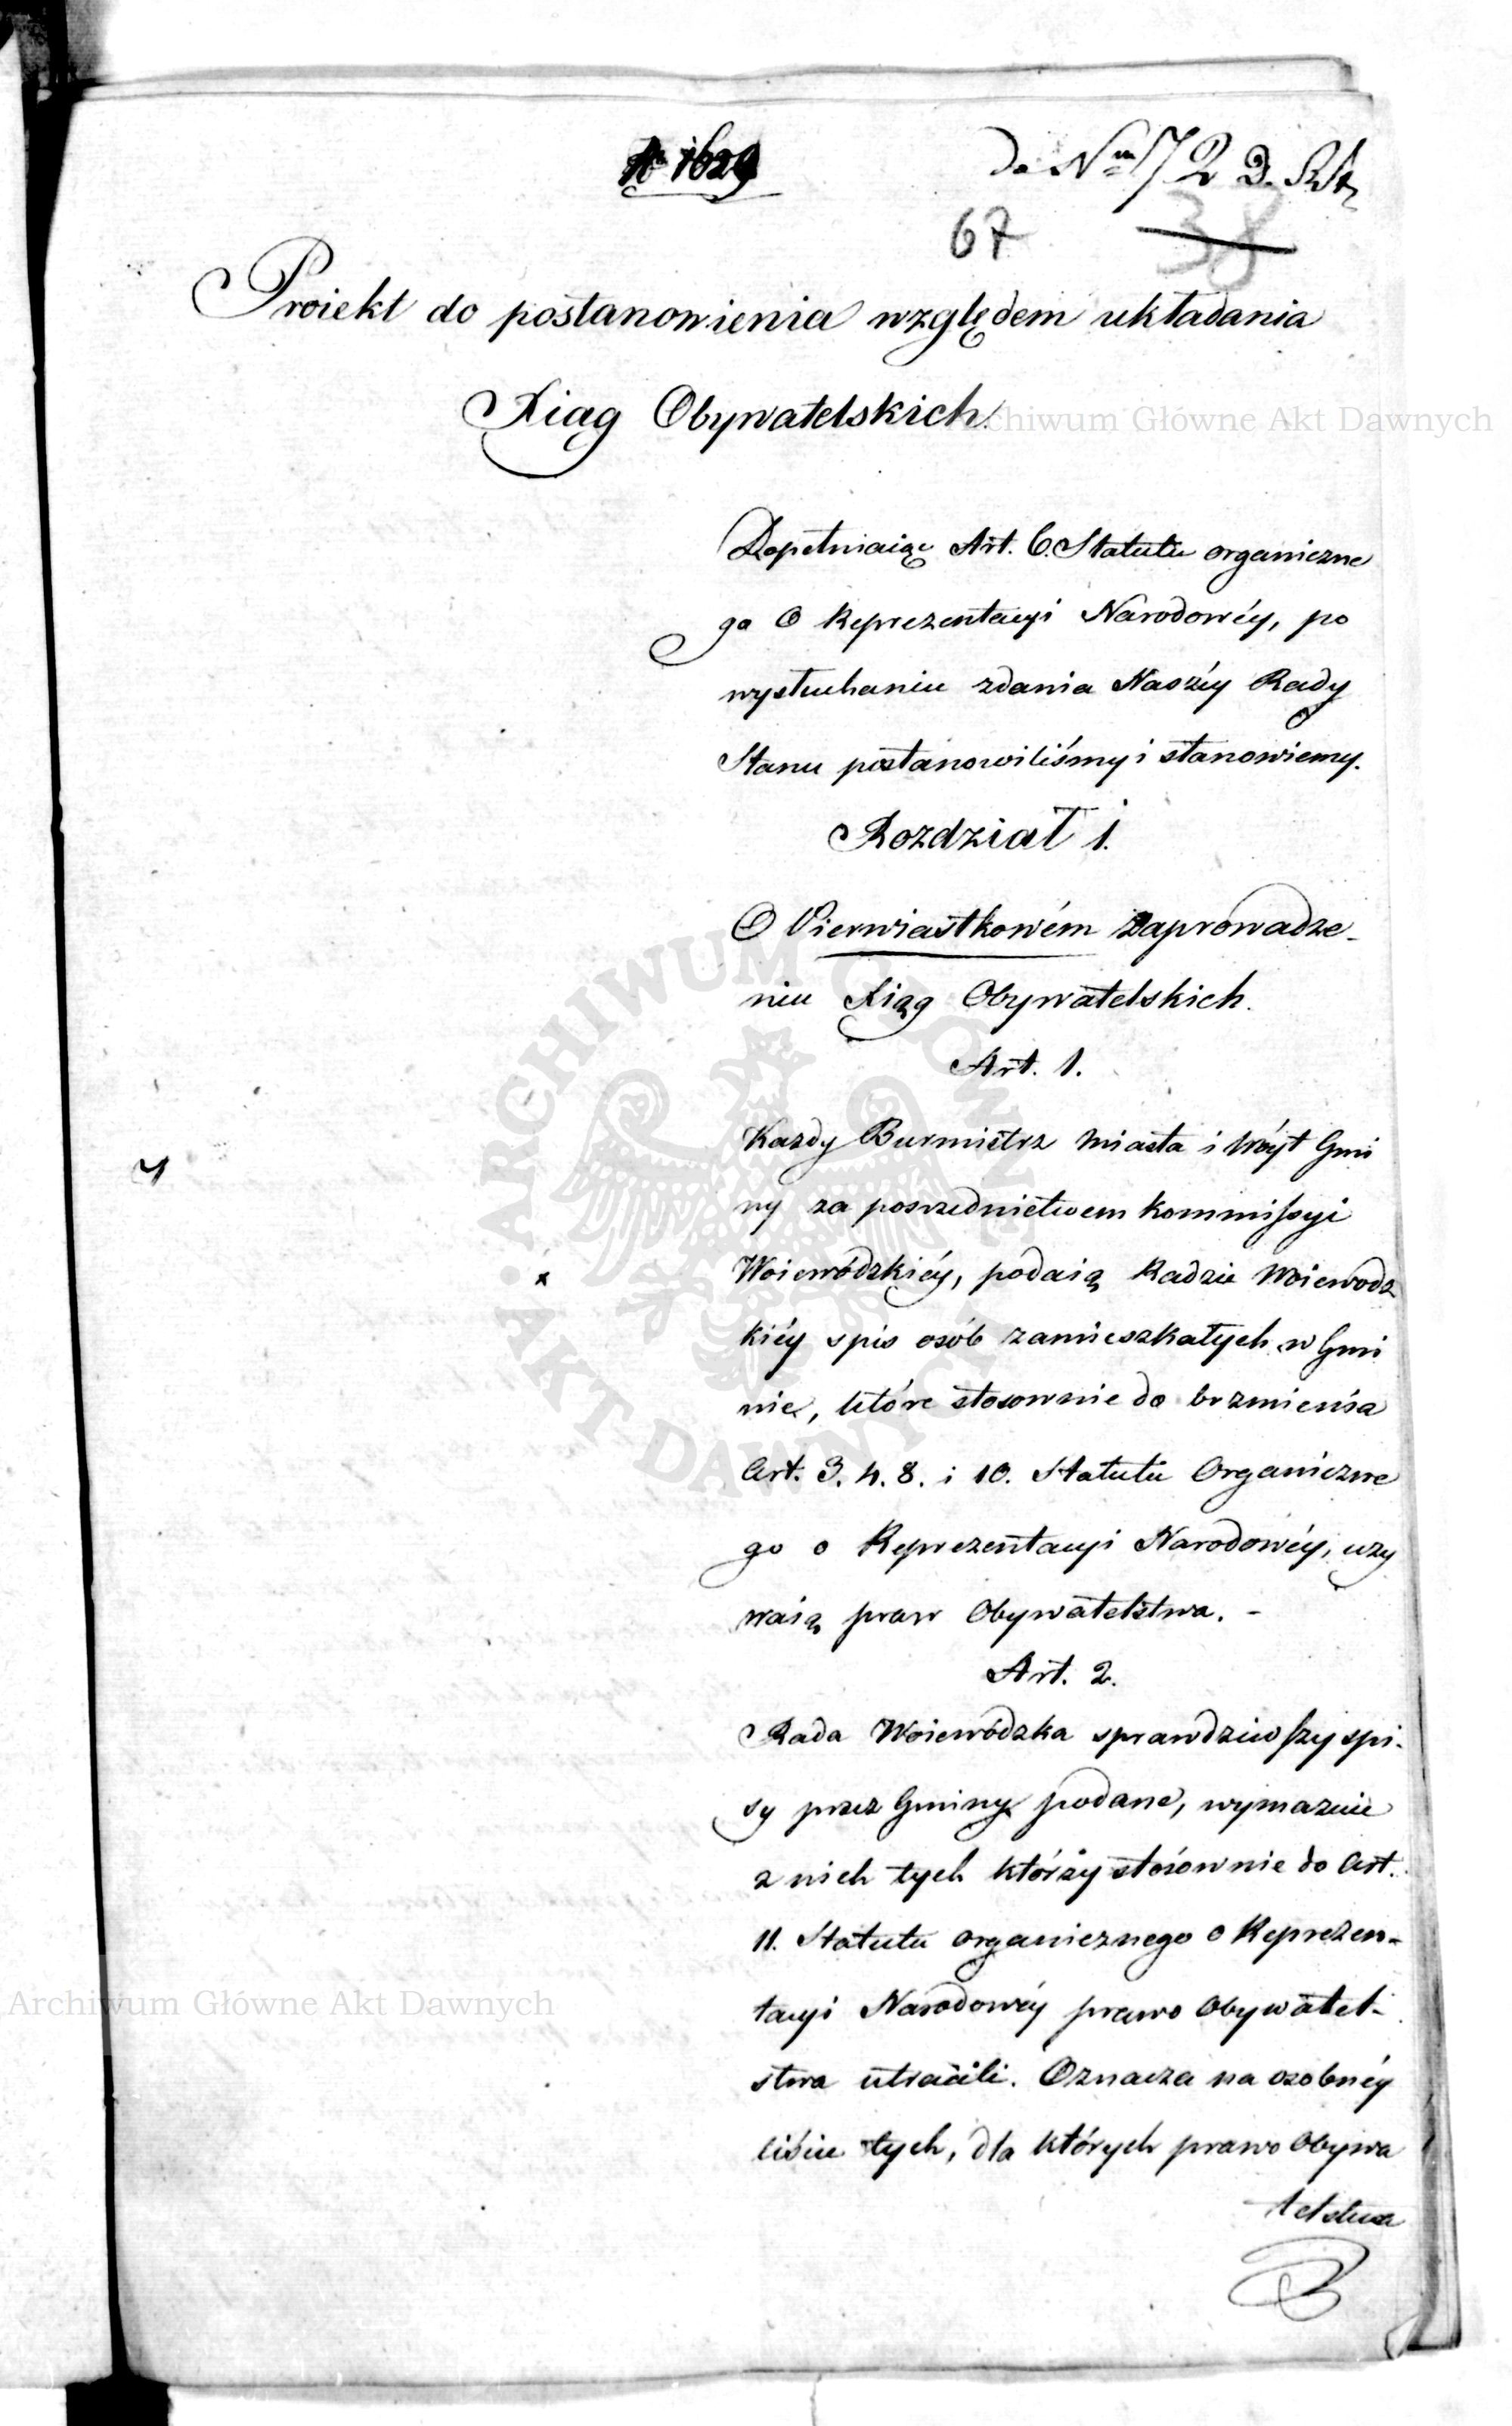 N 1629
do Nru 72 D. R. St.
67 38
Proiekt do postanowienia względem układania
Xiąg Obywatelskich.
Dopełniaiąc Art. 6. Statutu organiczne
go O Reprezentacyi Narodowéy, po
wysłuchaniu zdania Naszéy Rady
Stanu postanowiliśmy i stanowiemy.
Rozdział 1.
O Pierwiastkowém Zaprowadze-
niu Xiąg Obywatelskich.
Art. 1.
Kazdy Burmistrz Miasta i Wóyt Gmi
ny za posrzednictwem Kommissyi
Woiewódzkiéy, podaią Radzie Woiewodz
kiéy spis osób zamieszkałych w Gmi
nie, które stosownie do brzmienia
Art. 3. 4. 8. i 10. Statutu Organiczne
go o Reprezentacyi Narodowéy, uzy
waią praw Obywatelstwa. -
Art. 2.
Rada Woiewódzka sprawdziwszy spi-
sy przez Gminy podane, wymazuie
z nich tych którzy stosownie do Art.
11. Statutu organicznego o Reprezen-
tacyi Narodowéy prawo Obywatel-
stwa utracili. Oznacza na osobnéy
liście tych, dla których prawo Obywa
telstwa
Archiwum Główne Akt Dawnych
ARCHIWUM GŁÓWNE AKT DAWNYCH
Archiwum Główne Akt Dawnych